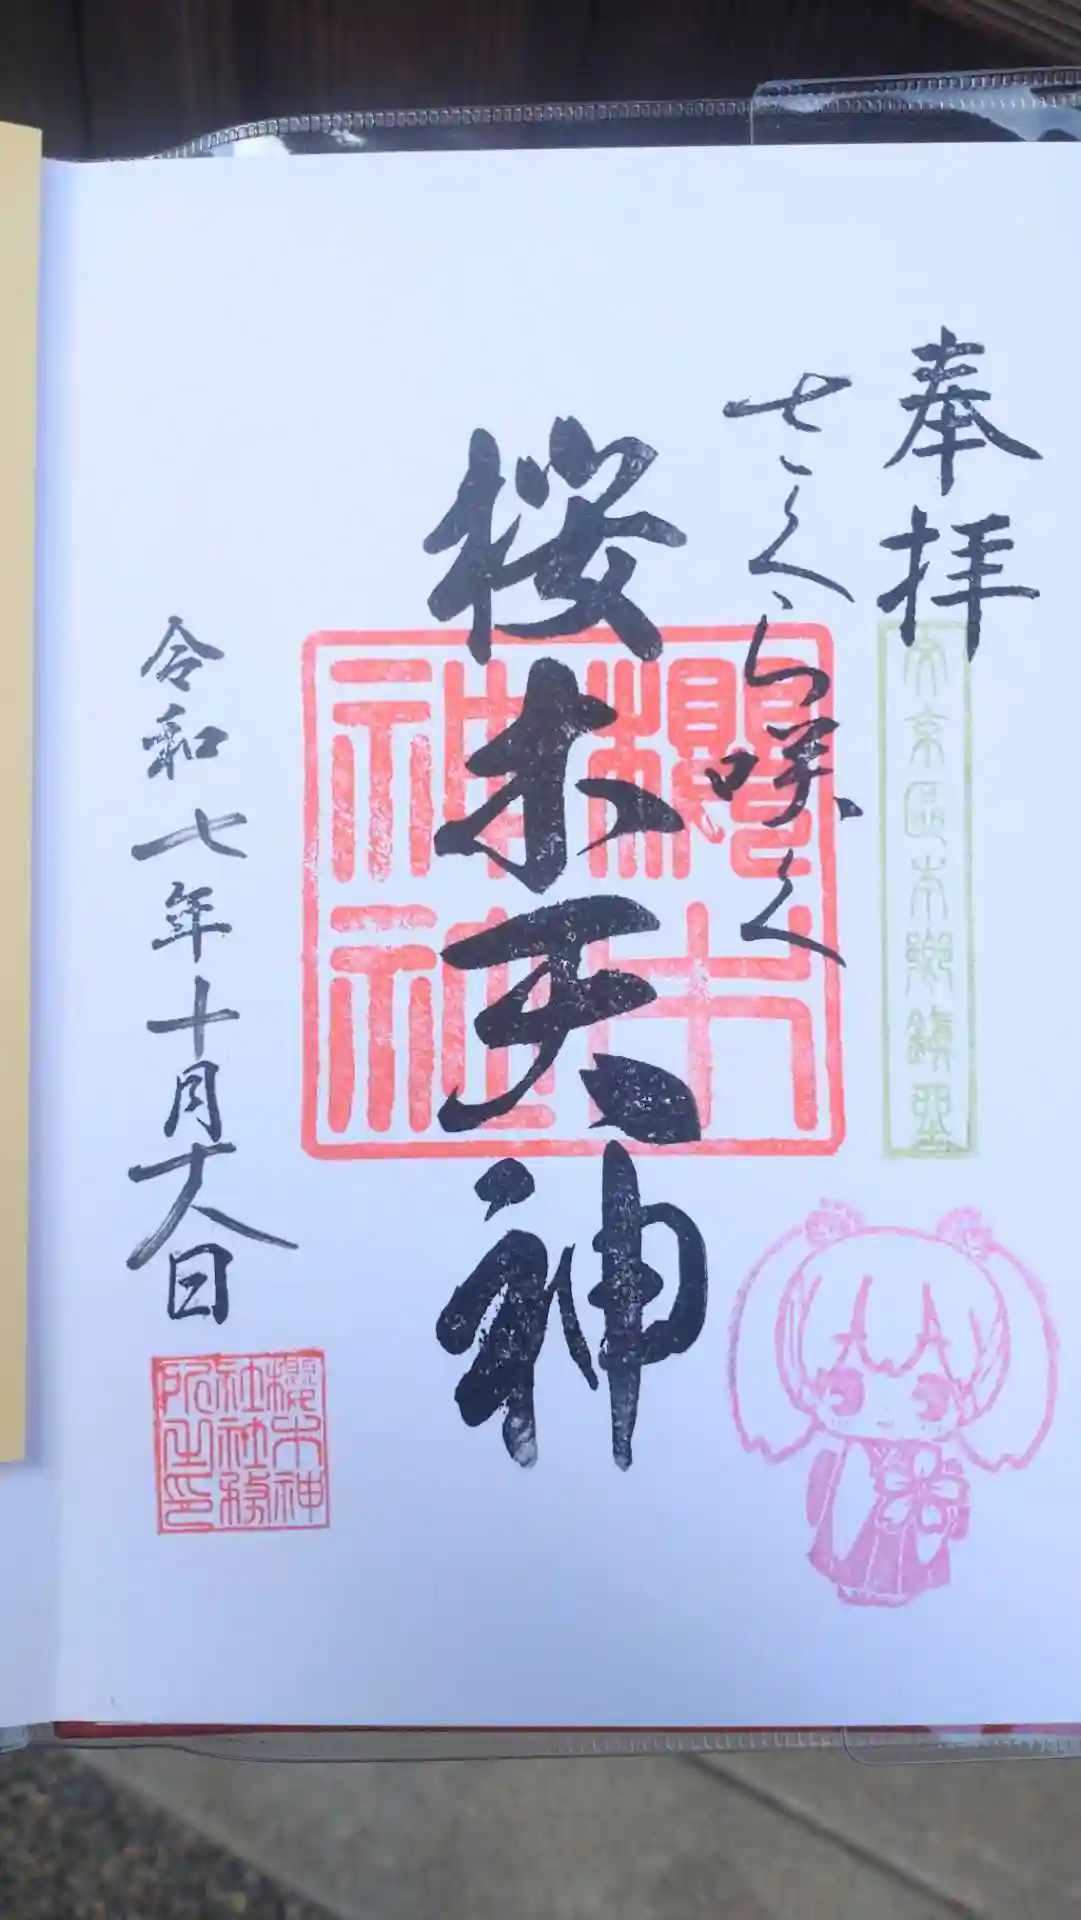 奉拝
文京區本郷鎮座
さくら咲く
桜木天神
櫻木
神社
令和七年十月十八日
櫻木神
社社務
所之印